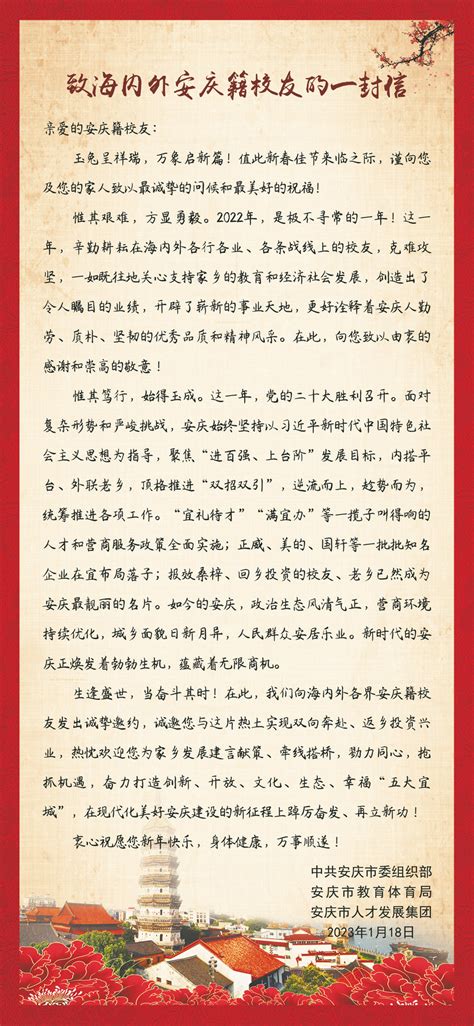 致海内外安庆籍校友的一封信
亲爱的安庆籍校友：
玉兔呈祥瑞，万象启新篇！值此新春佳节来临之际，谨向您
及您的家人致以最诚挚的问候和最美好的祝福！
惟其艰难，方显勇毅。2022年，是极不寻常的一年！这一
年，辛勤耕耘在海内外各行各业、各条战线上的校友，克难攻
坚，一如既往地关心支持家乡的教育和经济社会发展，创造出了
令人瞩目的业绩，开辟了崭新的事业天地，更好诠释着安庆人勤
劳、质朴、坚韧的优秀品质和精神风采。在此，向您致以由衷的
感谢和崇高的敬意！
惟其笃行，始得玉成。这一年，党的二十大胜利召开。面对
复杂形势和严峻挑战，安庆始终坚持以习近平新时代中国特色社
会主义思想为指导，聚焦“进百强、上台阶”发展目标，内搭平
台、外联老乡，顶格推进“双招双引”，逆流而上，趁势而为，
统筹推进各项工作。“宜礼待才”“满宜办”等一揽子叫得响的
人才和营商服务政策全面实施；正威、美的、国轩等一批批知名
企业在宜布局落子；报效桑梓、回乡投资的校友、老乡已然成为
安庆最靓丽的名片。如今的安庆，政治生态风清气正，营商环境
持续优化，城乡面貌日新月异，人民群众安居乐业。新时代的安
庆正焕发着勃勃生机，蕴藏着无限商机。
生逢盛世，当奋斗其时！在此，我们向海内外各界安庆籍校
友发出诚挚邀约，诚邀您与这片热土实现双向奔赴、返乡投资兴
业，热忱欢迎您为家乡发展建言献策、牵线搭桥，勠力同心，抢
抓机遇，奋力打造创新、开放、文化、生态、幸福“五大宜
城”，在现代化美好安庆建设的新征程上踔厉奋发、再立新功！
衷心祝愿您新年快乐，身体健康，万事顺遂！
中共安庆市委组织部
安庆市教育体育局
安庆市人才发展集团
2023年1月18日